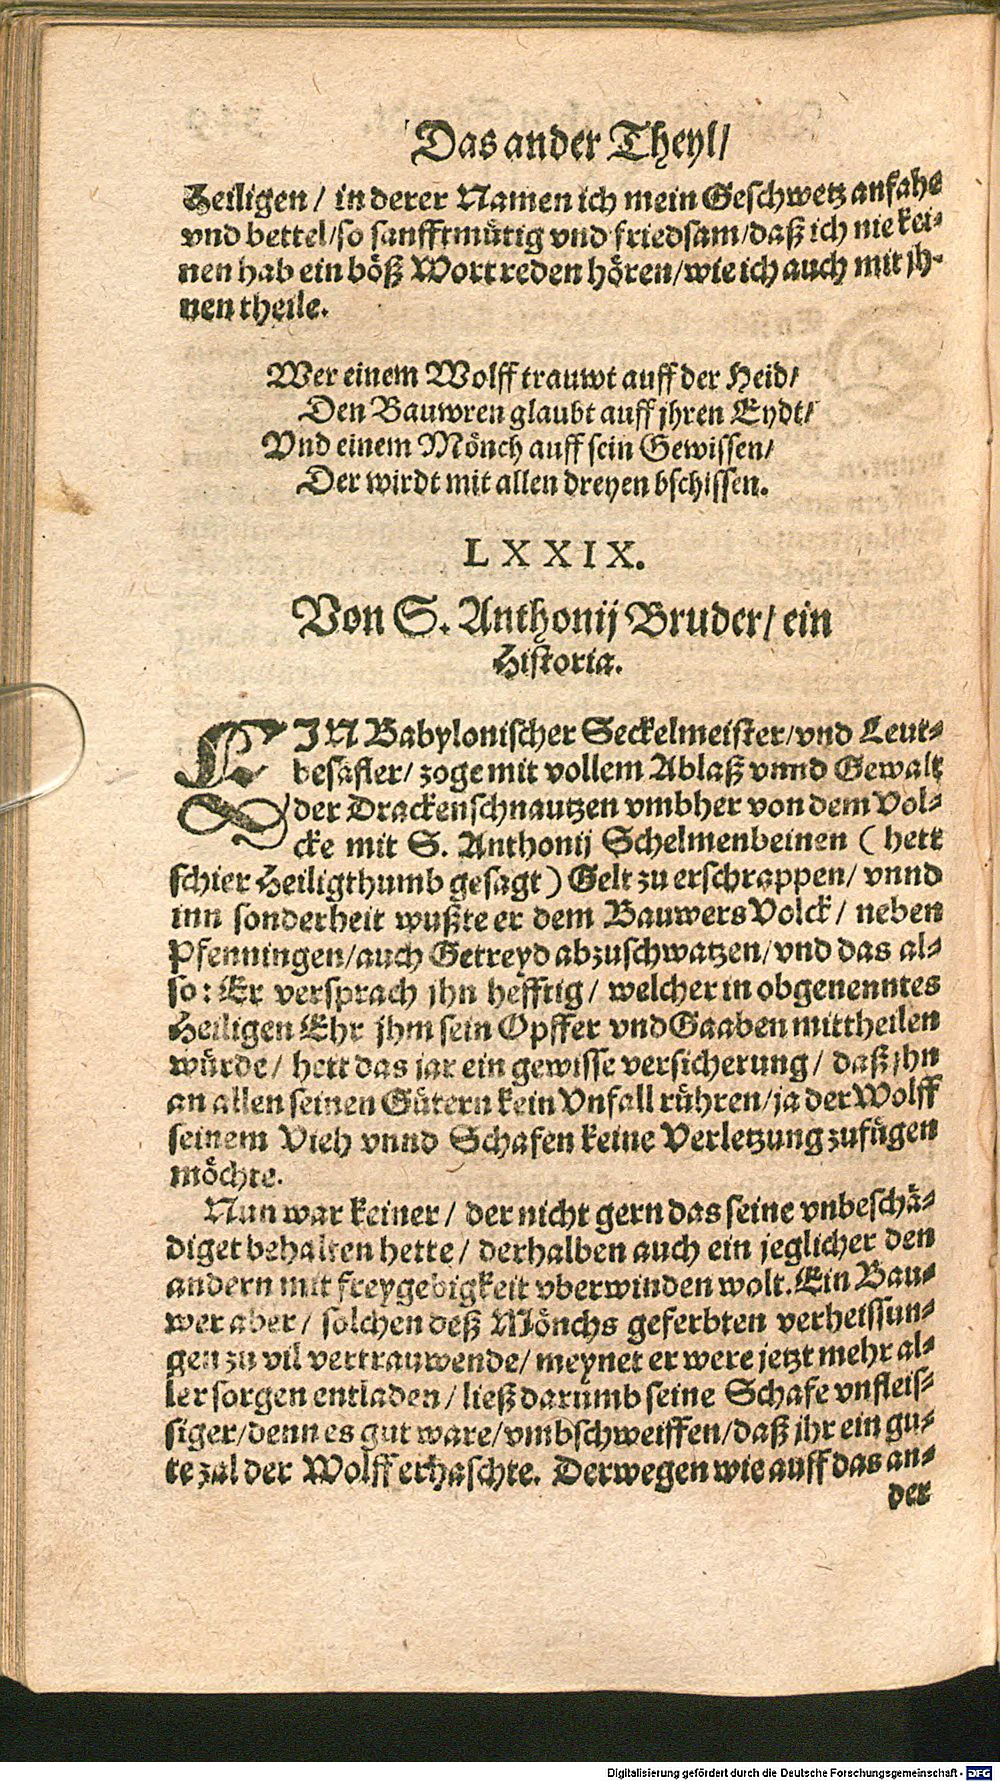 Das ander Theyl/
Heiligen / in derer Namen ich mein Geschwetz anfahe
vnd bettel/so sanfftmütig vnd friedsam/daß ich nie kei-
nen hab ein böß Wort reden hören/wie ich auch mit jh-
nen theile.
Wer einem Wolff trauwt auff der Heid/
Den Bauwren glaubt auff jhren Eydt/
Vnd einem Mönch auff sein Gewissen/
Der wirdt mit allen dreyen bschissen.
LXXIX.
Von S. Anthonij Bruder/ ein
Historia.
EIN Babylonischer Seckelmeister/vnd Leut-
besäfler/ zoge mit vollem Ablaß vnnd Gewalt
der Drackenschnautzen vmbher von dem Vol-
cke mit S. Anthonij Schelmenbeinen ( hett
schier Heiligthumb gesagt) Gelt zu erschrappen/ vnnd
inn sonderheit wußte er dem Bauwers Volck/ neben
Pfenningen/auch Getreyd abzuschwatzen/vnd das al-
so: Er versprach jhn hefftig/ welcher in obgenenntes
Heiligen Ehr jhm sein Opffer vnd Gaaben mittheilen
würde/ hett das jar ein gewisse versicherung/ daß jhn
an allen seinen Gütern kein Vnfall rühren/ja der Wolff
seinem Vieh vnnd Schafen keine Verletzung zufügen
möchte.
Nun war keiner/ der nicht gern das seine vnbeschä-
diget behalten hette/ derhalben auch ein jeglicher den
andern mit freygebigkeit vberwinden wolt. Ein Bau-
wer aber/ solchen deß Mönchs geferbten verheissun-
gen zu vil vertrauwende/ meynet er were jetzt mehr al-
ler sorgen entladen/ ließ darumb seine Schafe vnfleis-
siger/denn es gut ware/vmbschweiffen/daß jhr ein gu-
te zal der Wolff erhaschte. Derwegen wie auff das an-
der
Digitalisierung gefördert durch die Deutsche Forschungsgemeinschaft - DFG